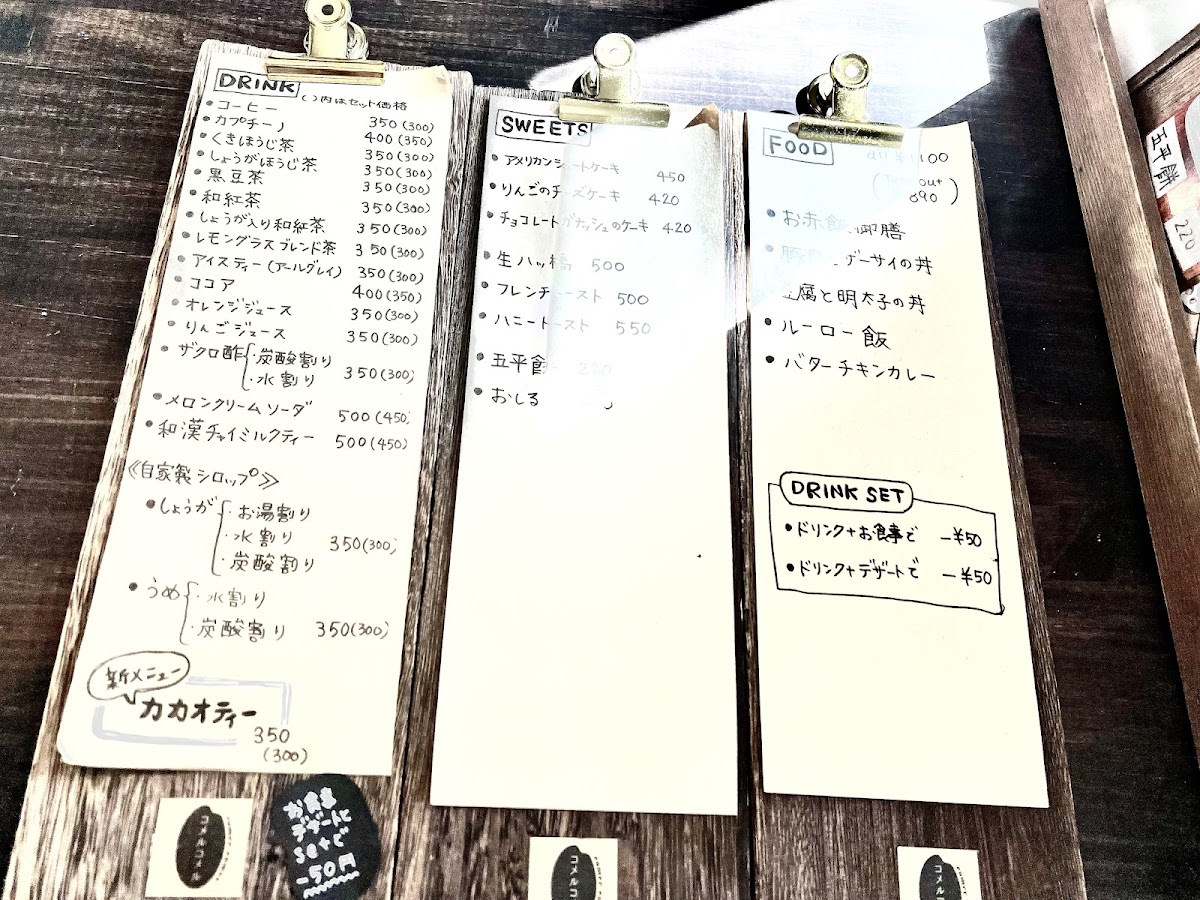 DRINK
( )内はセット価格
・コーヒー 350(300)
・カプチーノ 400(350)
・くきほうじ茶 350(300)
・しょうがほうじ茶 350(300)
・黒豆茶 350(300)
・和紅茶 350(300)
・しょうが入り和紅茶 350(300)
・レモングラスブレンド茶 350(300)
・アイスティー(アールグレイ) 350(300)
・ココア 400(350)
・オレンジジュース 350(300)
・りんごジュース 350(300)
・ザクロ酢
・炭酸割り
・水割り 350(300)
・メロンクリームソーダ 500(450)
・和漢チャイミルクティー 500(450)
《自家製シロップ》
・しょうが
・お湯割り
・水割り 350(300)
・炭酸割り
・うめ
・水割り
・炭酸割り 350(300)
新メニュー
カカオティー
350
(300)
お食事
デザートと
setで
-50円
コメルコメル
SWEETS
・アメリカンショートケーキ 450
・りんごのチーズケーキ 420
・チョコレートガナッシュのケーキ 420
・生ハッ橋 500
・フレンチトースト 500
・ハニートースト 550
・五平餅 220
・おしる
コメルコ
FOOD
all ¥1100
890
・お赤飯 御膳
ザーサイの丼
豆腐と明太子の丼
・ルーロー飯
・バターチキンカレー
DRINK SET
・ドリンク+お食事で -¥50
・ドリンク+デザートで -¥50
コメルコ
五平餅
220